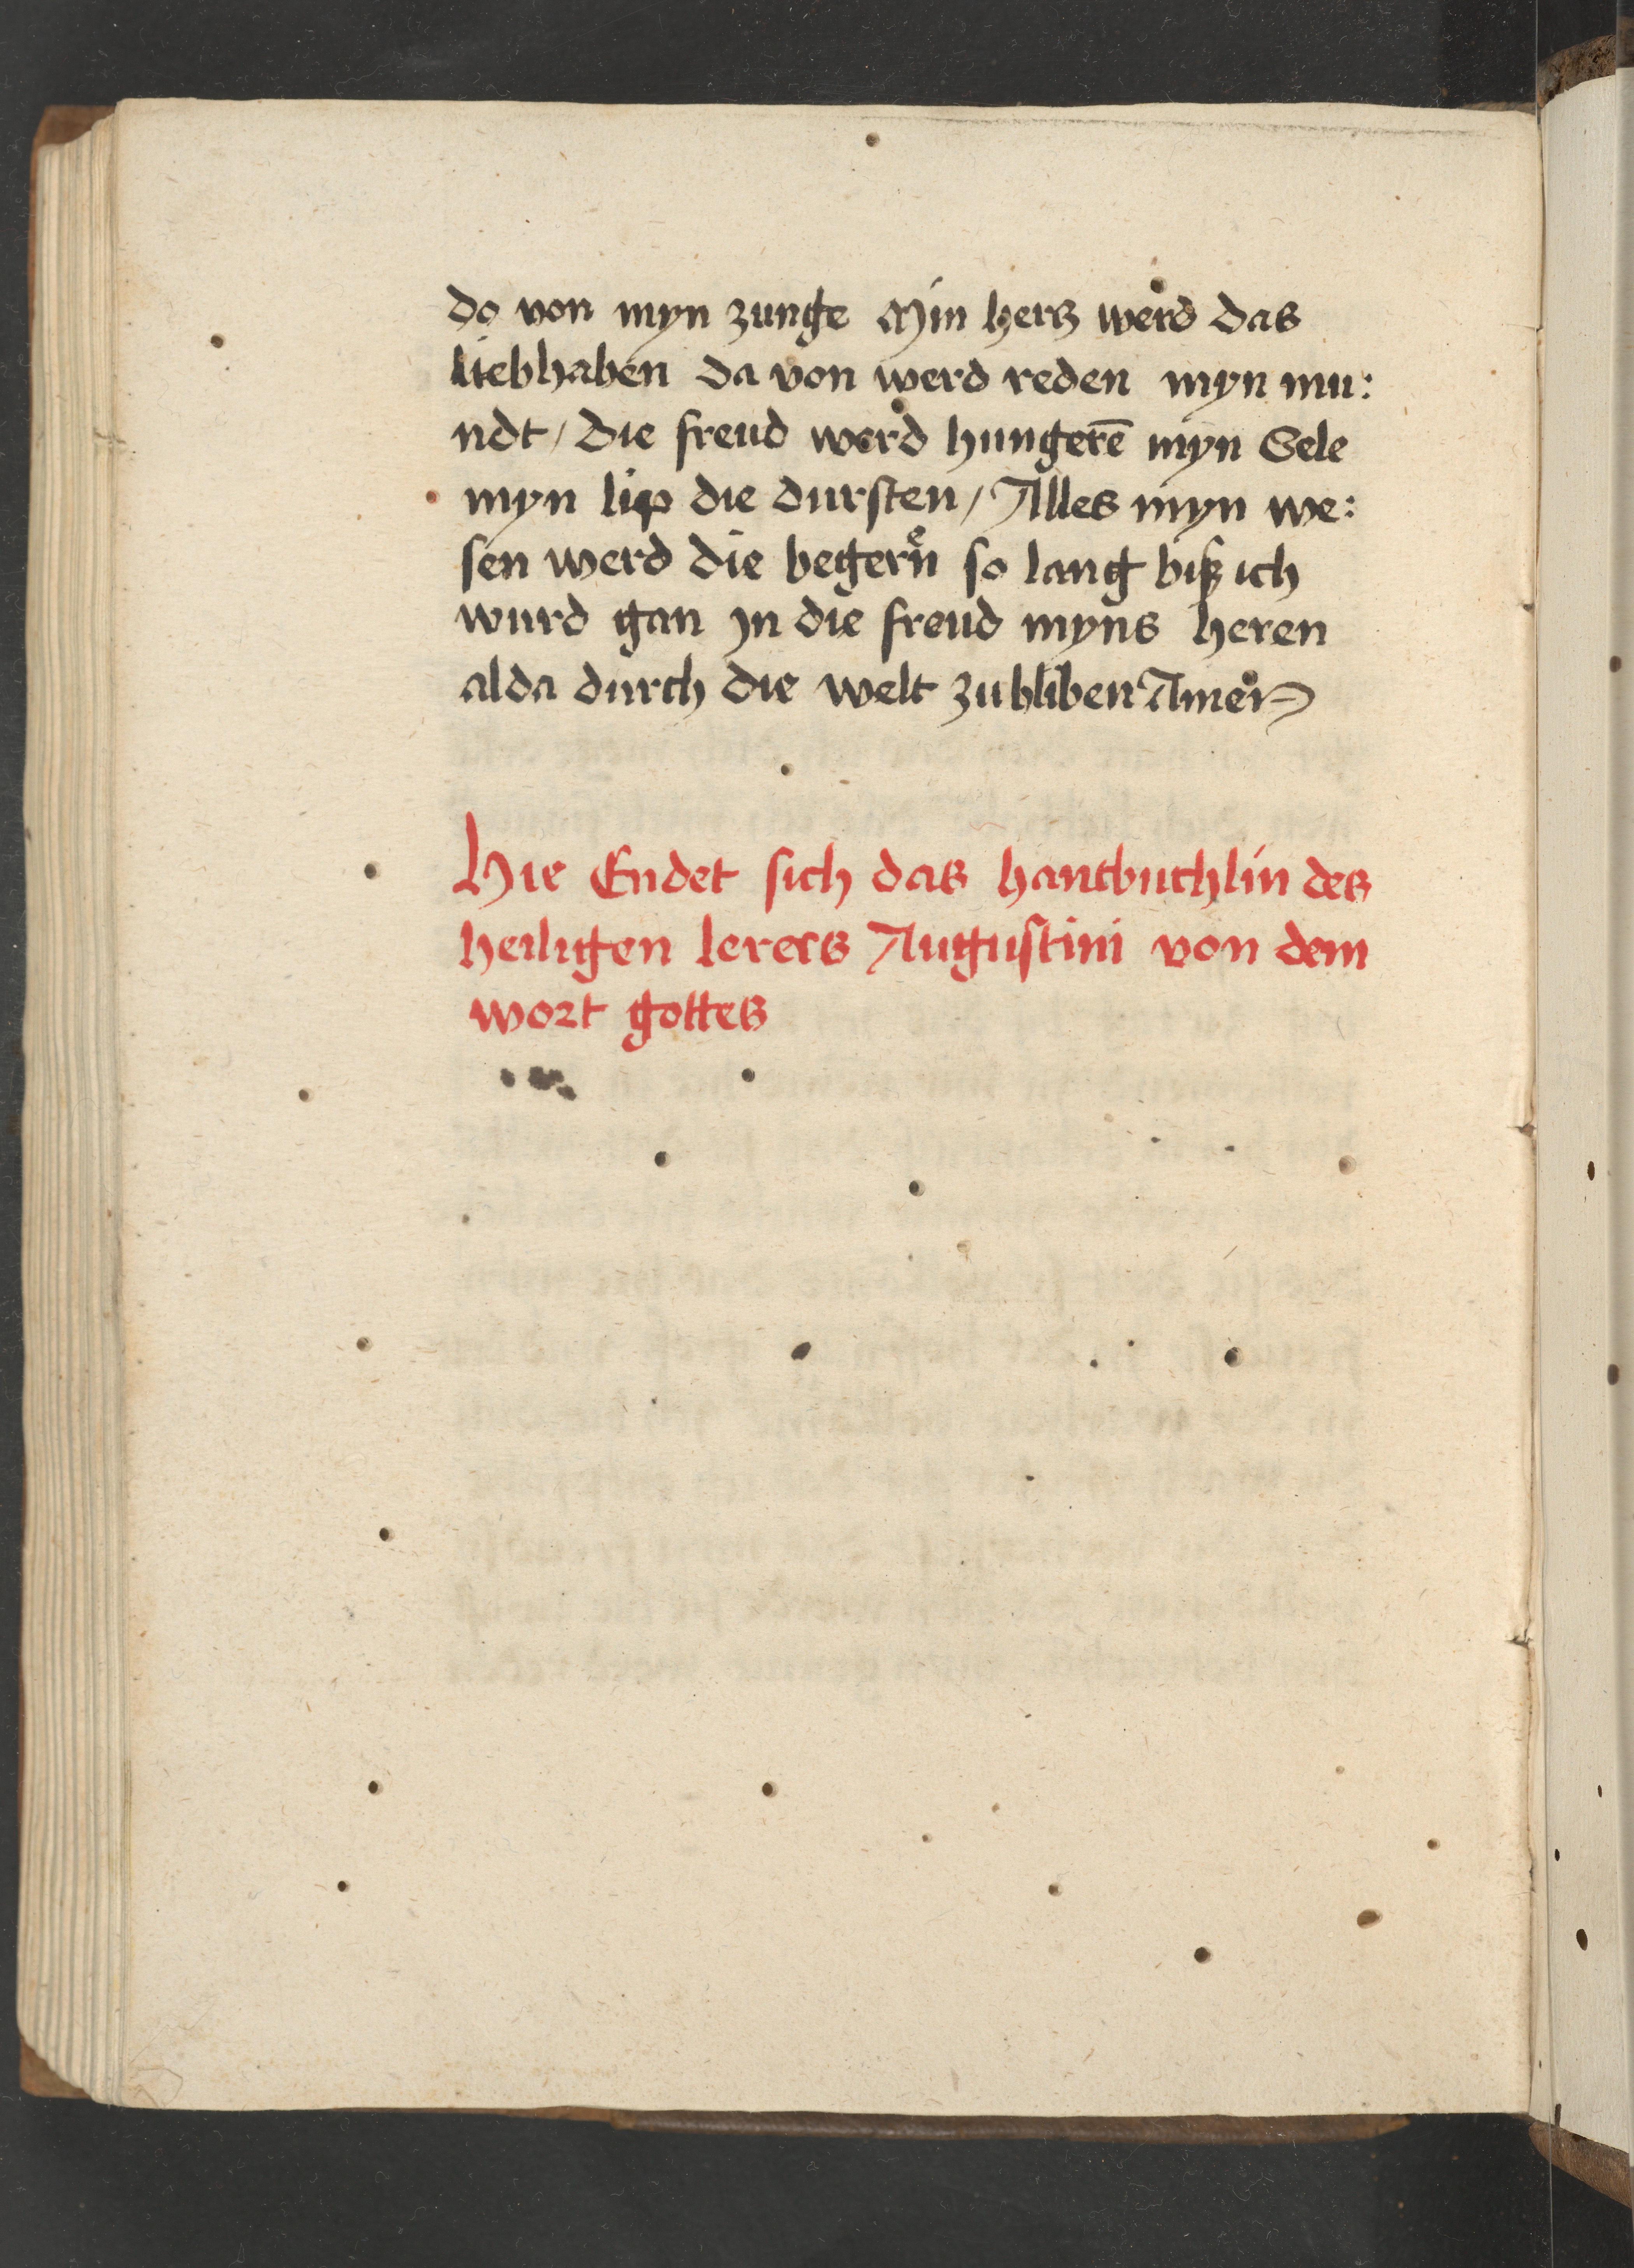 do von myn zunge Min hertz werd das
liebhaben da von werd reden myn mu:
ndt / Die freud werd hungerē myn Sele
myn lip die dursten / Alles myn we:
sen werd die begern so lang biß ich
wurd gan jn die freud myns heren
alda durch die welt zu bliben Amen
Hie Endet sich das hantbuchlin des
heiligen lerers Augustini von dem
wort gottes